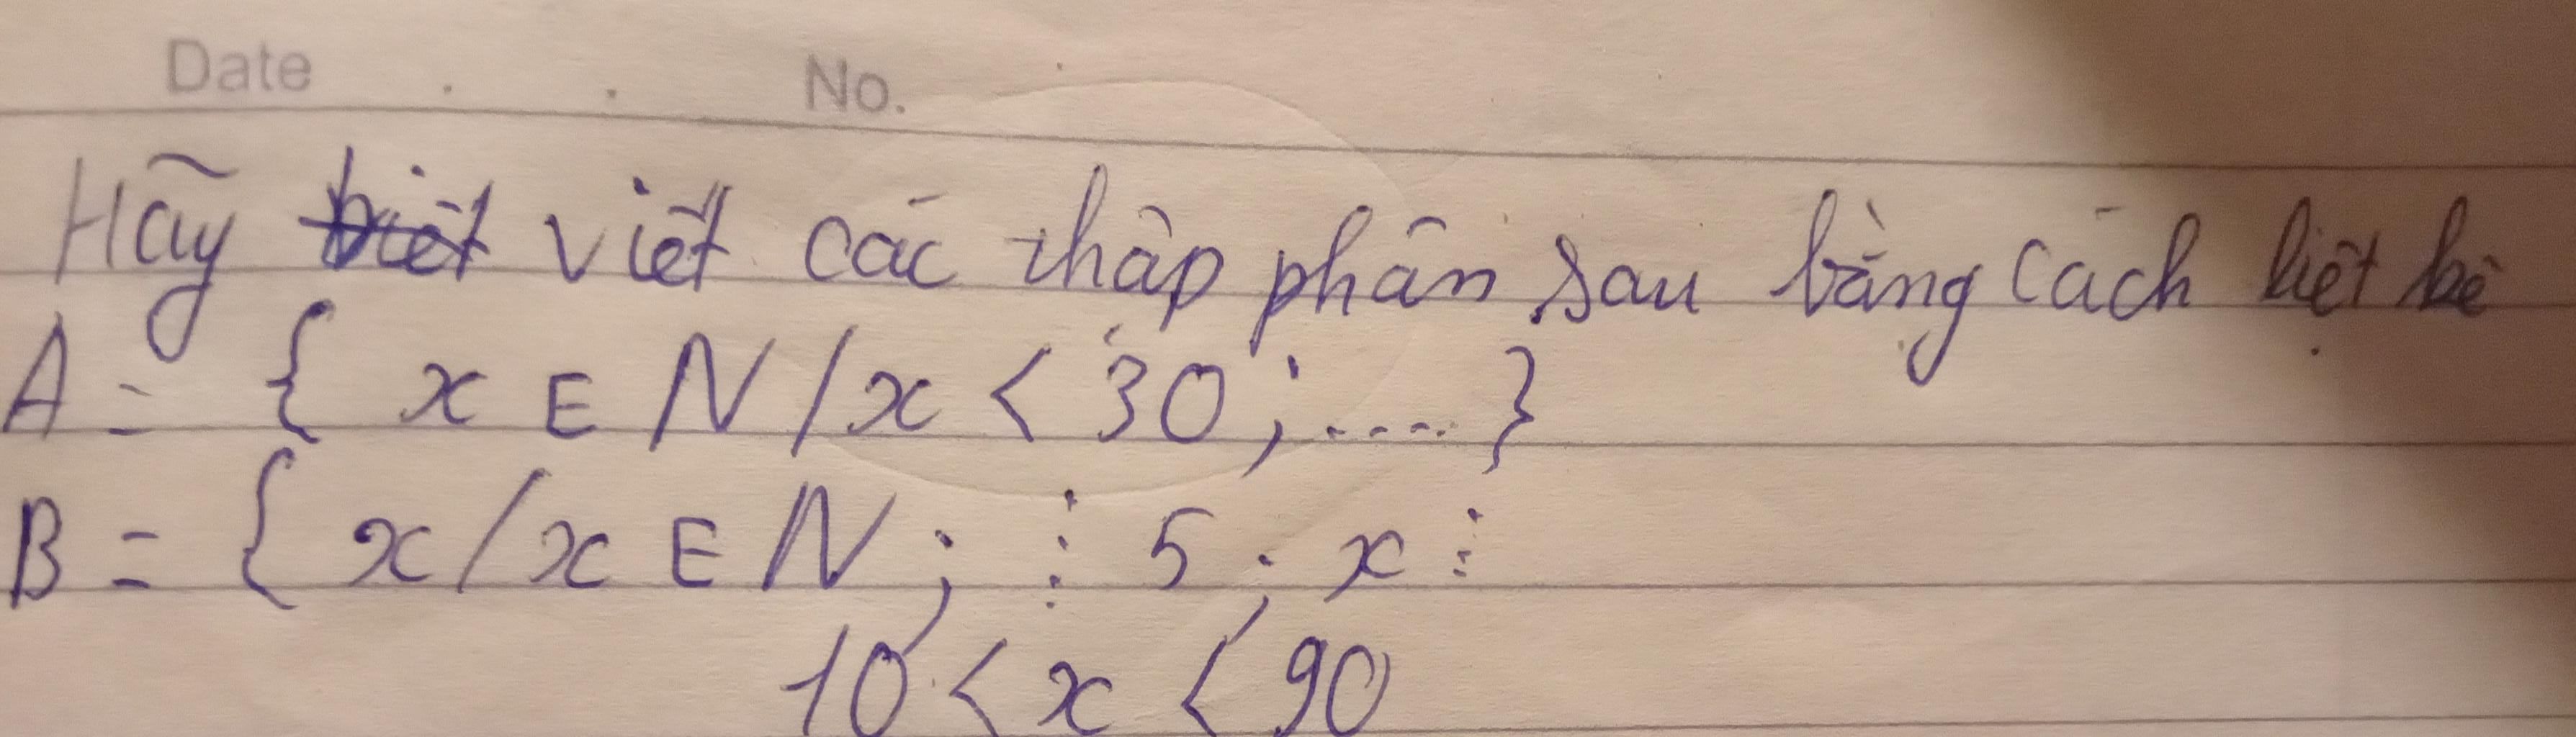 Date . . No.
Hãy viết các thập phân sau bằng cách liệt kê
A = { x ∈ N / x < 30 ; ..... }
B = { x / x ∈ N ; ⋮ 5 ; x ⋮
10 < x < 90